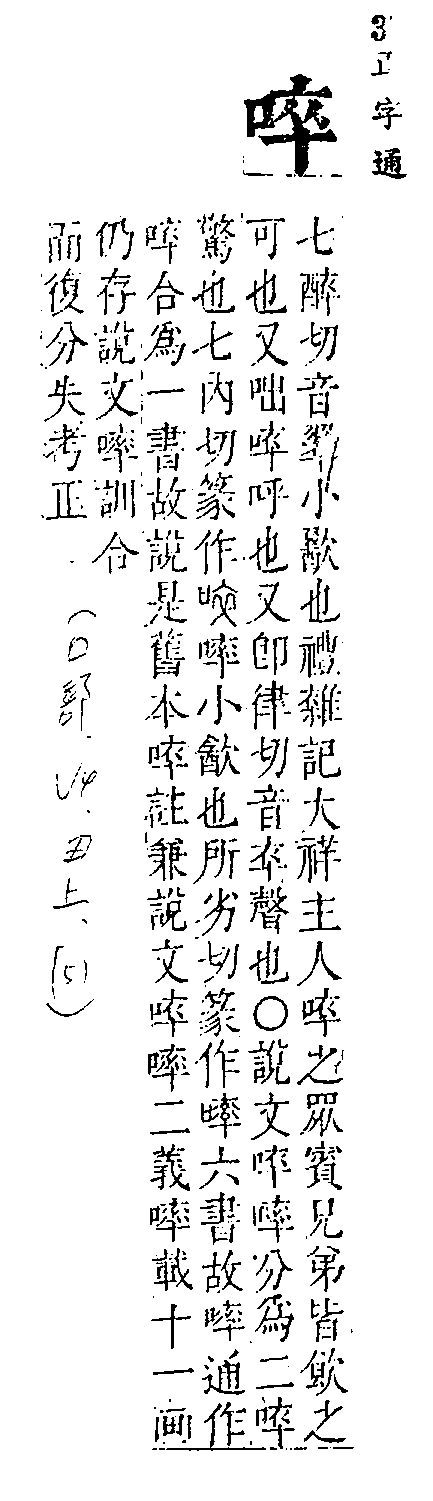 3 正字通
啐
七醉切音翠小歠也禮雜記大祥主人啐之眾賓兄弟皆飲之
可也又咄啐呼也又卽律切音卒聲也○說文啐㗚分爲二啐
驚也七內切篆作啐㗚小歠也所劣切篆作㗚六書故㗚通作
啐合爲一書故說是舊本啐註兼說文啐㗚二義㗚載十一画
仍存說文㗚訓合
而復分失考正
(口部. V4. 丑上. (5))